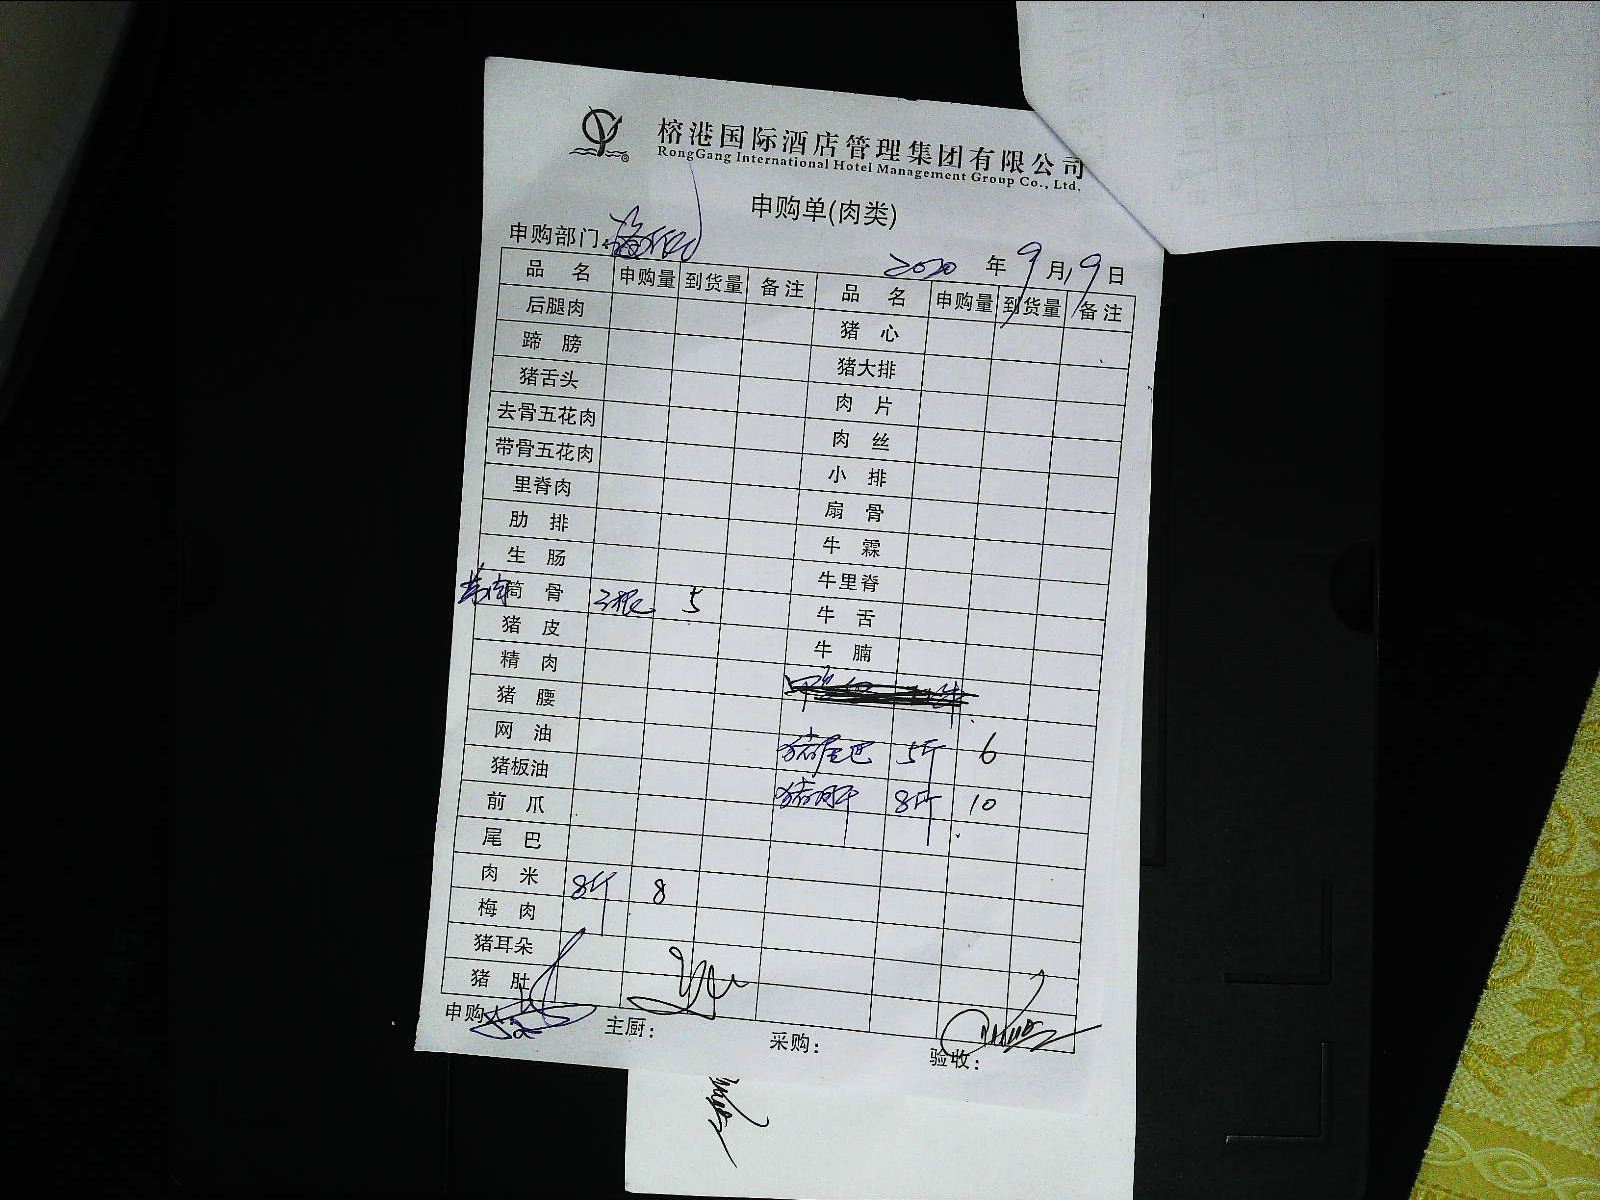 榕港国际酒店管理集团有限公司
RongGang International Hotel Management Group Co., Ltd.
申购单(肉类)
申购部门:
2020 年 9 月 19 日
品名 申购量 到货量 备注 品名 申购量 到货量 备注
后腿肉 猪心
蹄膀 猪大排
猪舌头 肉片
去骨五花肉 肉丝
带骨五花肉 小排
里脊肉 扇骨
肋排 牛霖
生肠 牛里脊
筒骨 5 牛舌
猪皮 牛腩
精肉
猪腰 猪尾巴 5斤 6
网油 猪肝 8斤 10
猪板油
前爪
尾巴
肉米 8斤 8
梅肉
猪耳朵
猪肚
申购人 主厨: 采购: 验收: